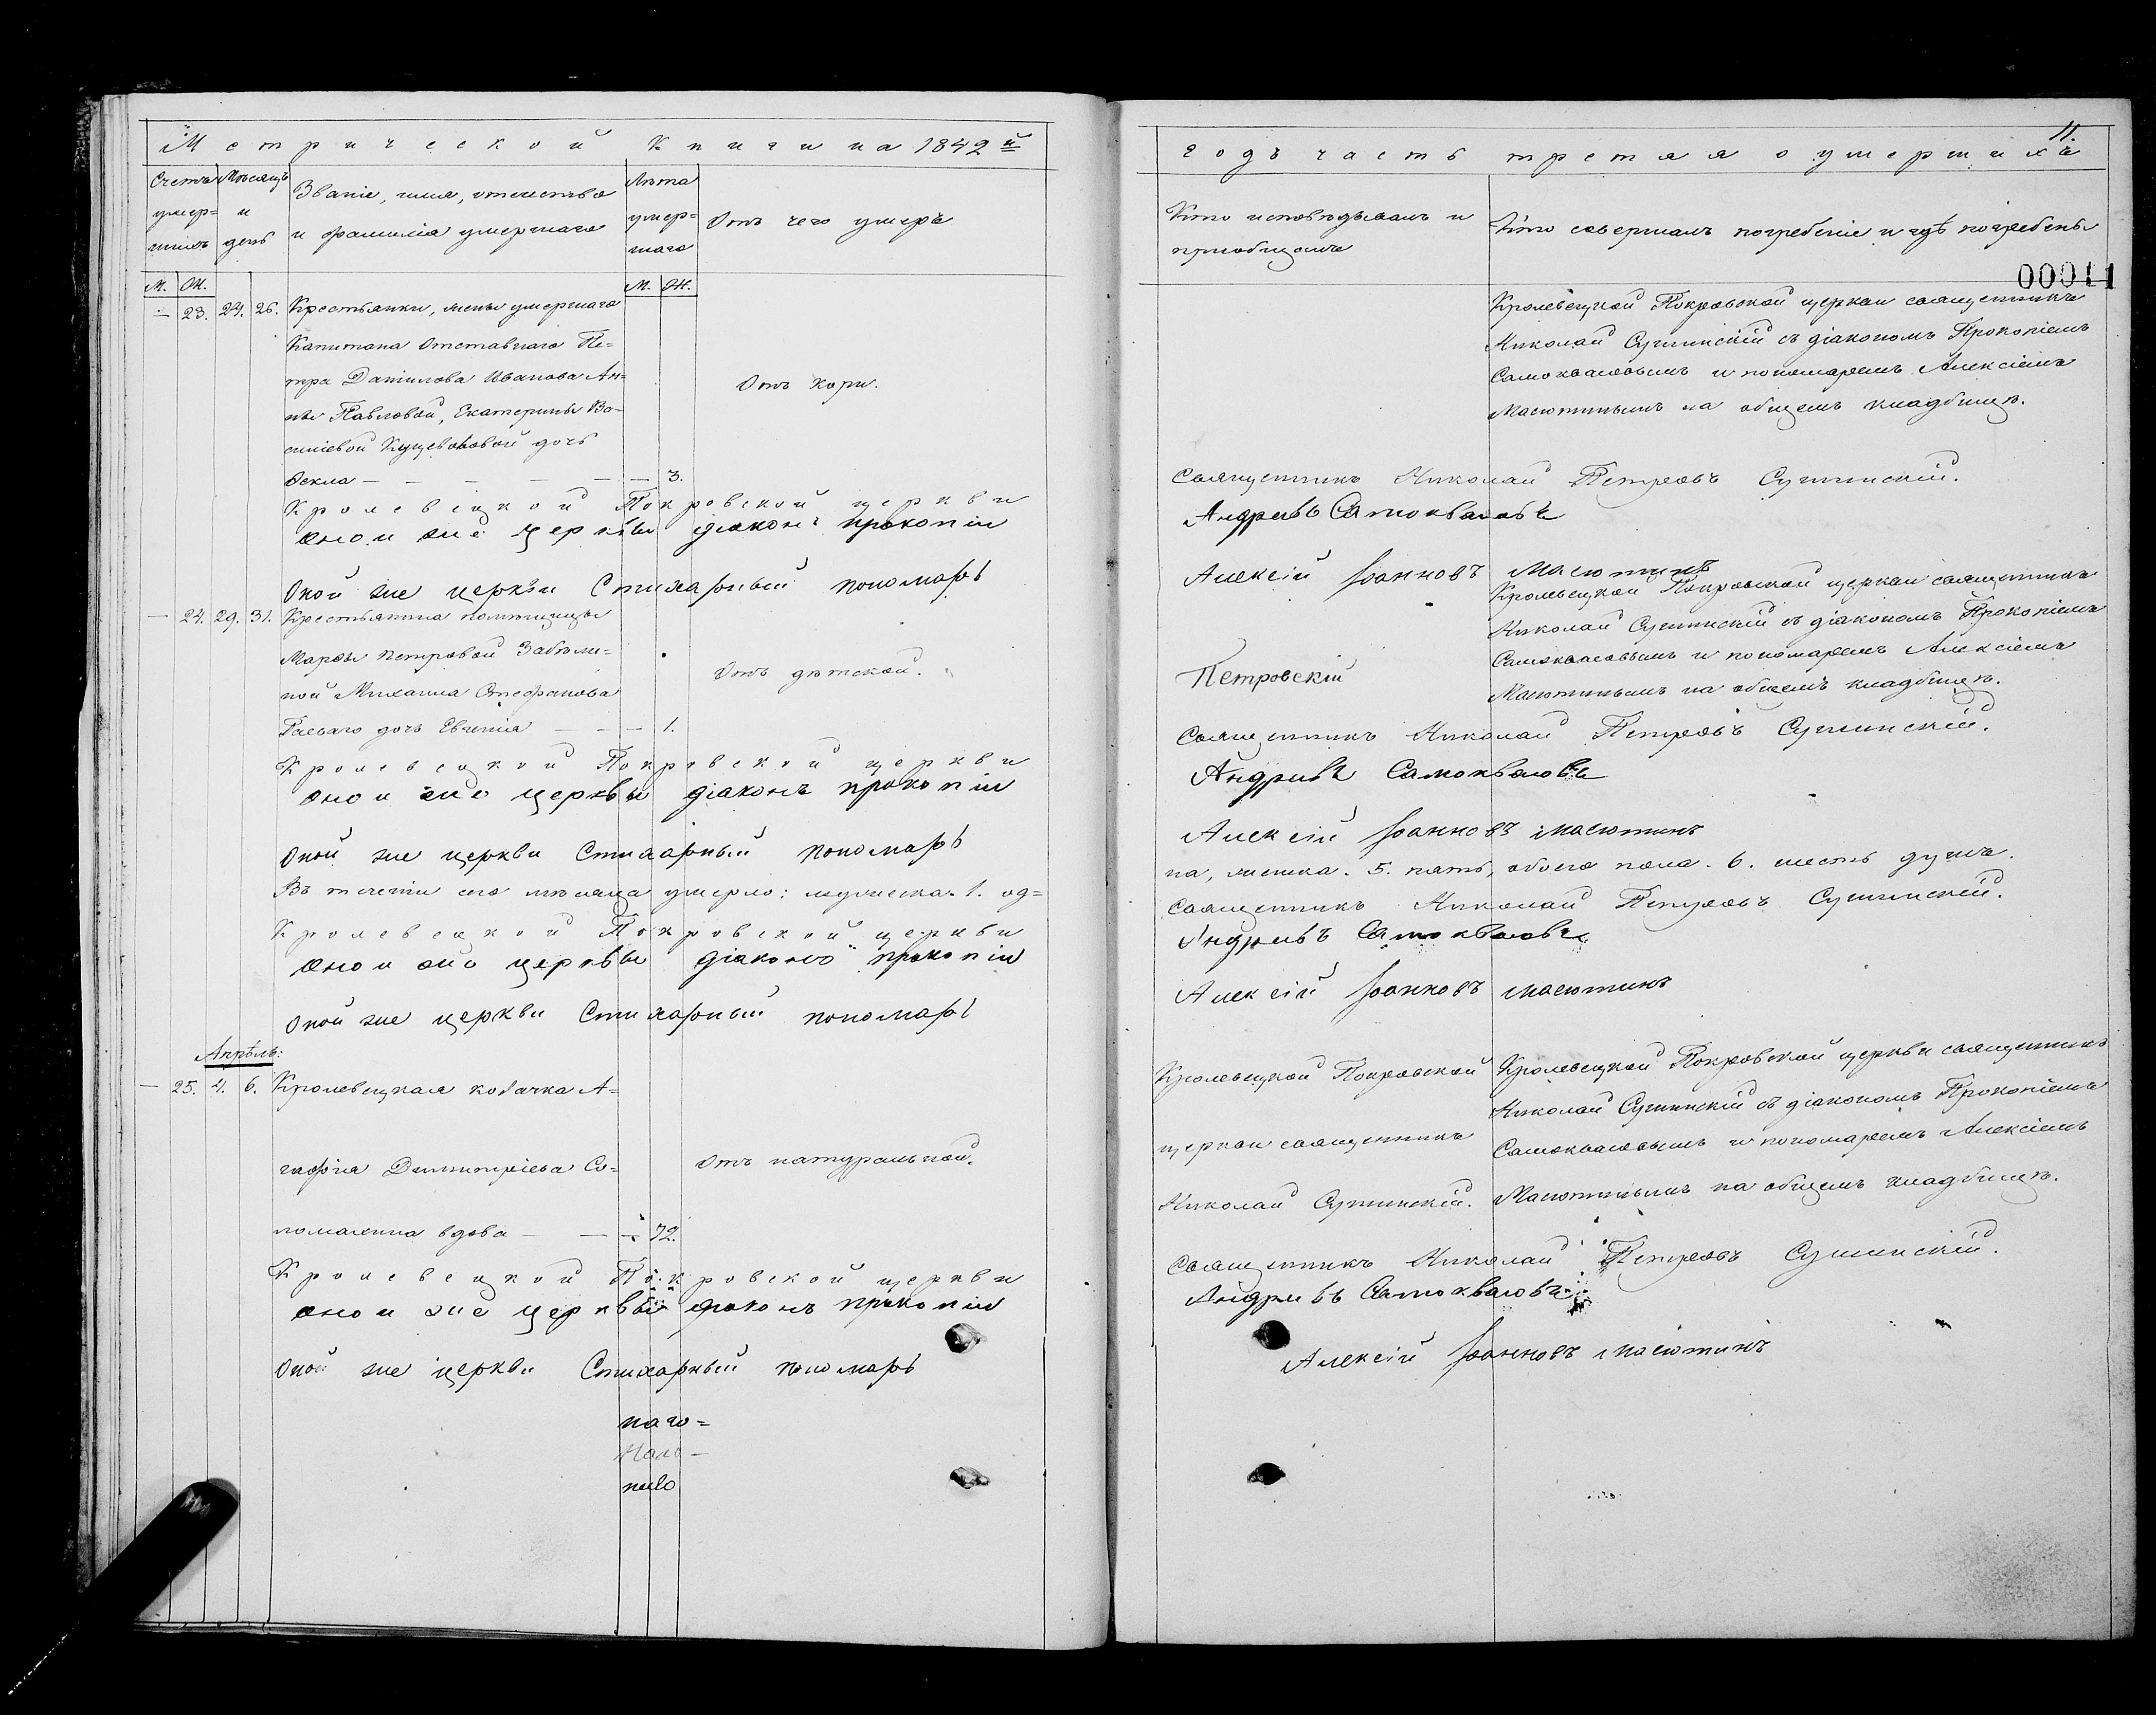 Метрической Книги на 1842й
Счетъ умер=шихъ
Мѣсяцъ и день
Званіе, имя, отчество
и фамилія умершаго
Лѣта умер=шаго
Отъ чего умеръ
М. Ж.
М. Ж.
— 23. 24. 26. Крестьянки, жены умершаго
Капитана Отставнаго Пе=
тра Данилова Иванова Ан=
ны Павловой, Екатерины Ва=
силіевой дочь
Фекла — — — — — — 3.
Отъ кори.
Кролевецкой Покровской церкви
оной же церкви діаконъ прокопій
Оной же церкви Стихарный пономарь
— 24. 29. 31. Крестьянина помѣщицы
Марѳы Петровой Забѣли=
ной Михаила Стефанова
дочь Евгенія — — — 1.
Отъ дѣтской.
Кролевецкой Покровской церкви
оной же церкви діаконъ прокопій
Оной же церкви Стихарный пономарь
Въ теченіи сего мѣсяца умерло: мужеска. 1. од=
Кролевецкой Покровской церкви
оной же церкви діаконъ прокопій
Оной же церкви Стихарный пономарь
Апрѣль:
— 25. 4. 6. Кролевецкая козачка А=
гафія Димитріева Со=
ломахина вдова — — — 72.
Отъ натуральной.
Кролевецкой Покровской церкви
оной же церкви діаконъ прокопій
Оной же церкви Стихарный пономарь
11.
годъ часть третяя о умершихъ
Кто исповѣдывалъ и
пріобщалъ
Кто совершалъ погребеніе и гдѣ погребены
00011
Кролевецкой Покровской церкви священникъ
Николай Сушинскій съ діакономъ Прокопіемъ
Самоквасовымъ и пономаремъ Алексіемъ
Масютинымъ на общемъ кладбищѣ.
Священникъ Николай Петровъ Сушинскій.
Андріевъ Самоквасовъ
Алексій Іоанновъ Масютинъ
Кролевецкой Покровской церкви священникъ
Николай Сушинскій съ діакономъ Прокопіемъ
Самоквасовымъ и пономаремъ Алексіемъ
Масютинымъ на общемъ кладбищѣ.
Петровскій
Священникъ Николай Петровъ Сушинскій.
Андріевъ Самоквасовъ
Алексій Іоанновъ Масютинъ
на, женска. 5. пять, обоего пола. 6. шесть душъ.
Священникъ Николай Петровъ Сушинскій.
Андріевъ Самоквасовъ
Алексій Іоанновъ Масютинъ
Кролевецкой Покровской
церкви священникъ
Николай Сушинскій.
Кролевецкой Покровской церкви священникъ
Николай Сушинскій съ діакономъ Прокопіемъ
Самоквасовымъ и пономаремъ Алексіемъ
Масютинымъ на общемъ кладбищѣ.
Священникъ Николай Петровъ Сушинскій.
Андріевъ Самоквасовъ
Алексій Іоанновъ Масютинъ